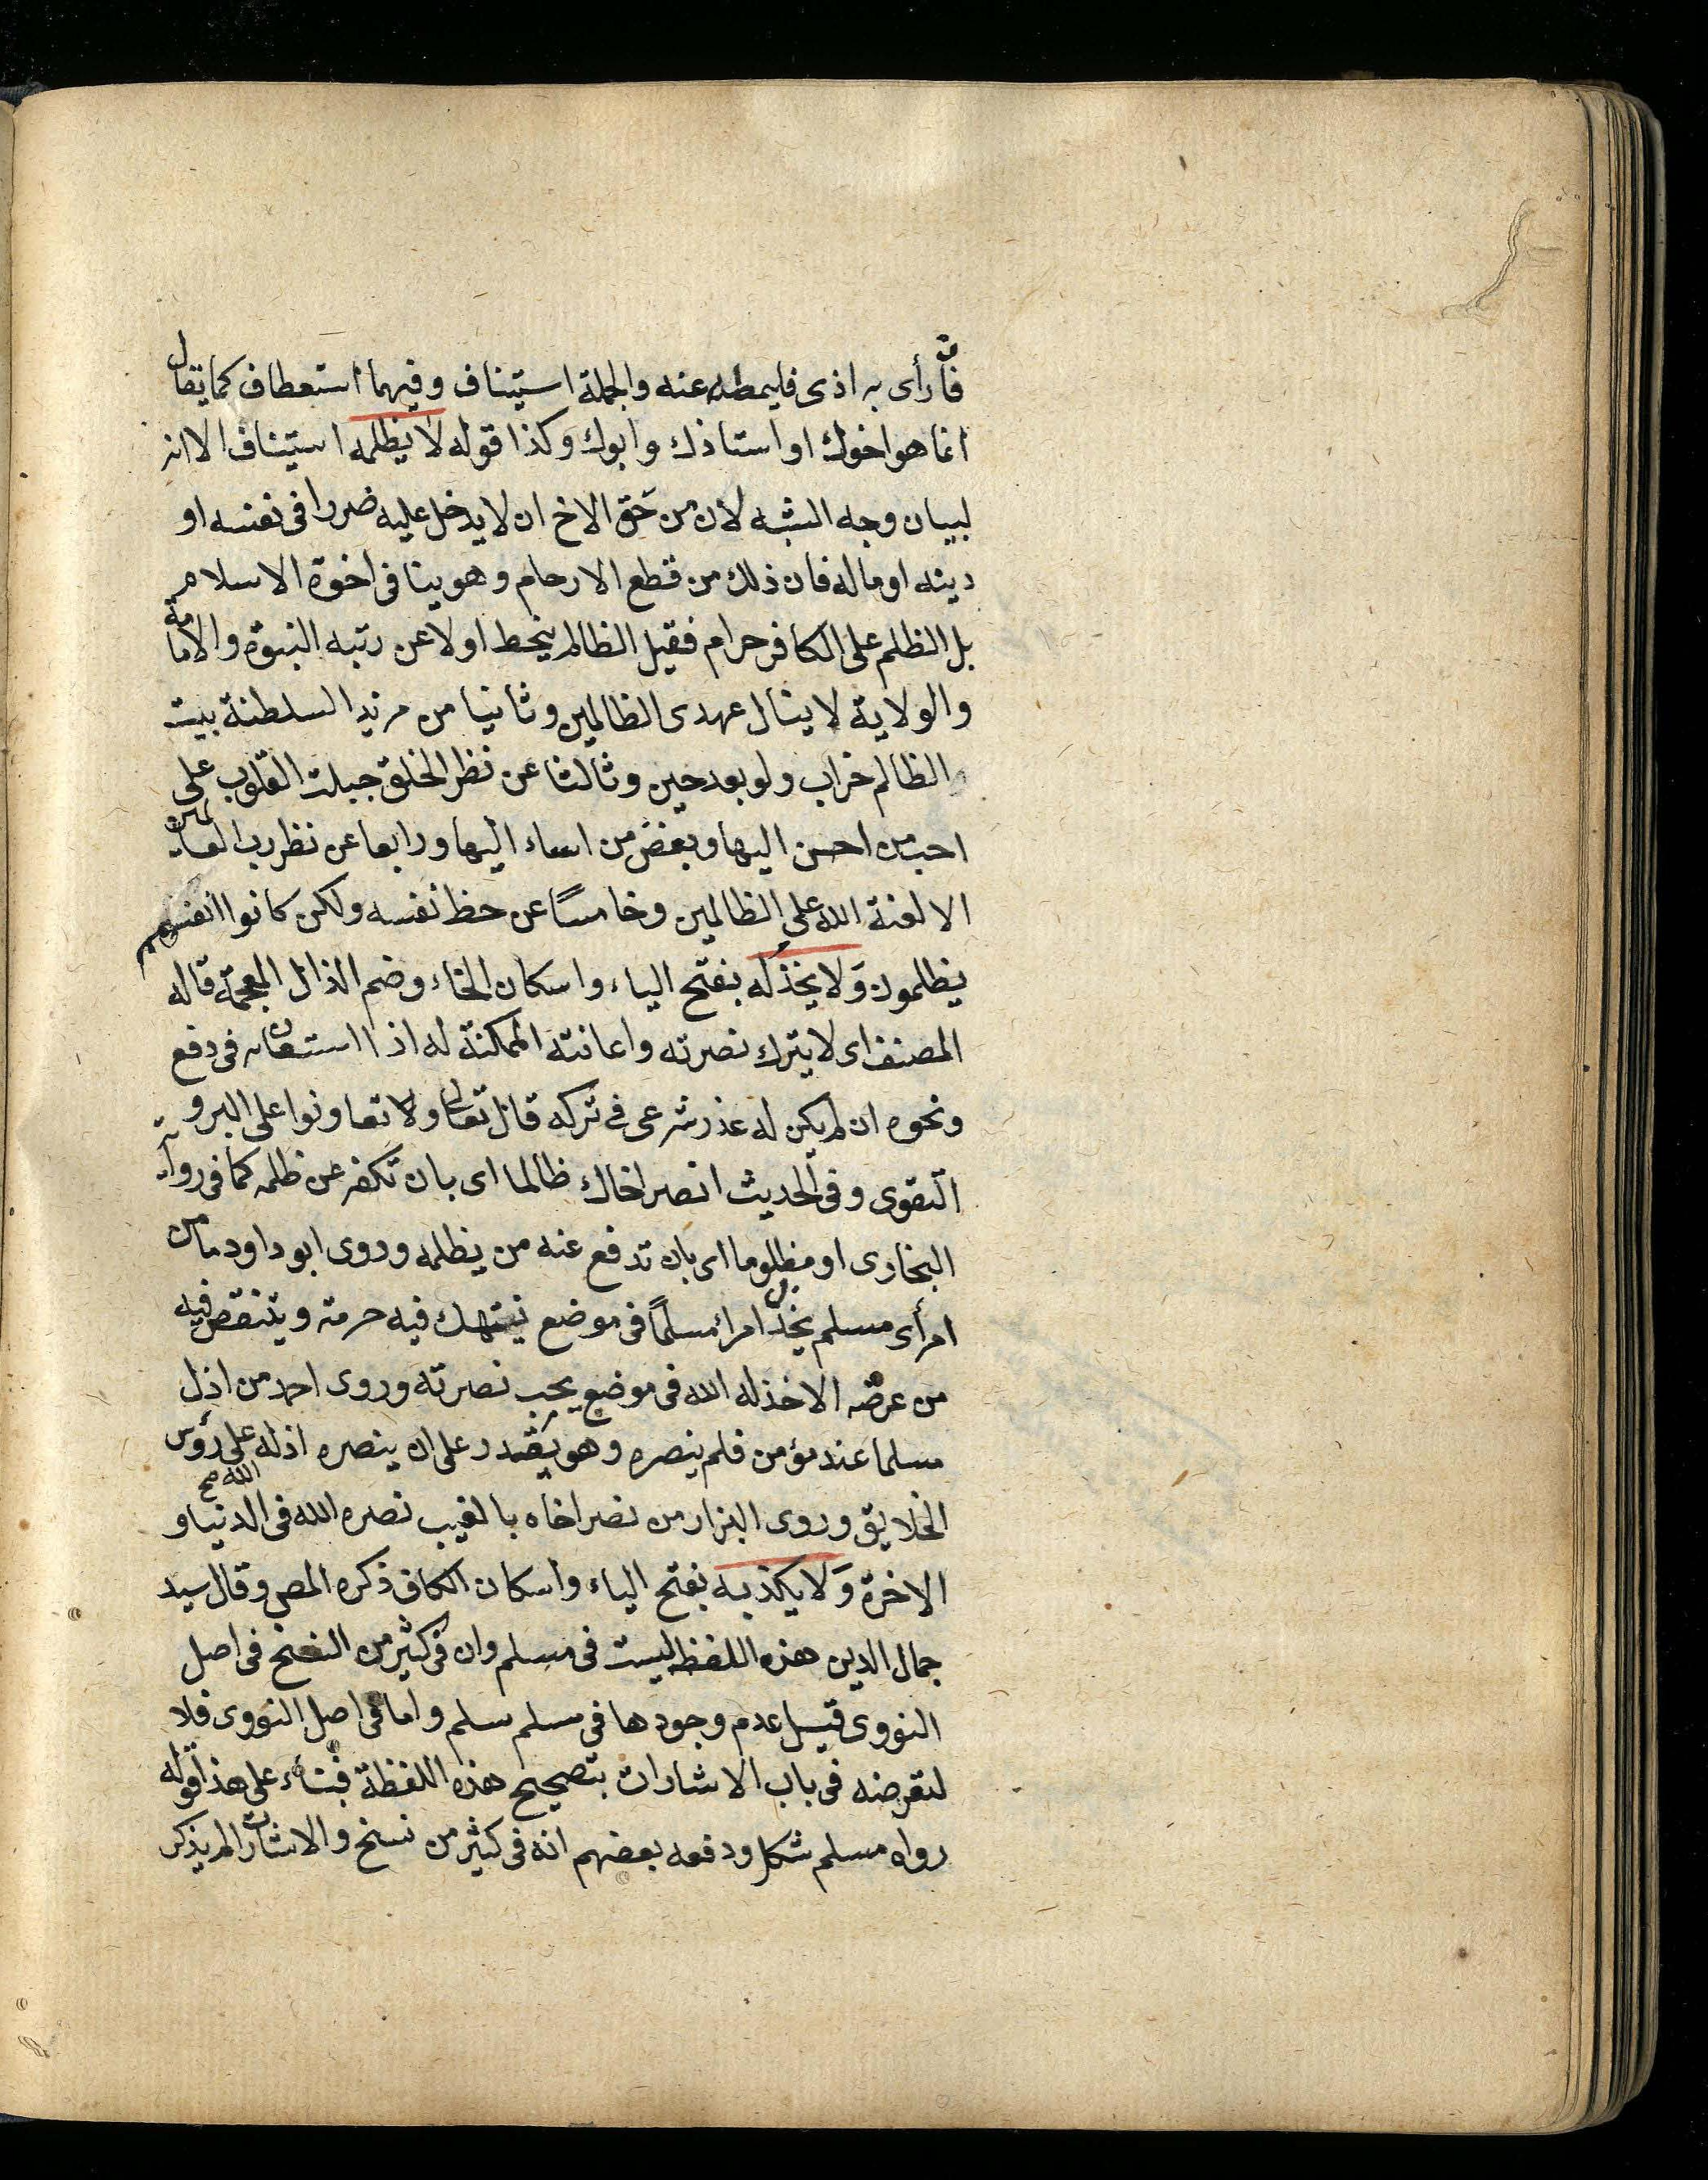 فان رأى به اذى فليمطه عنه والجملة استيناف وفيهما استعطاف كما يقال
انما هو اخوك او استاذك وابوك وكذا قوله لا يظلمه استيناف الا انه
لبيان وجه الشبه لان من حَق الاخ ان لا يدخل عليه ضررا فى نفسه او
دينه او ماله فان ذلك من قطع الارحام وهو ينافى اخوة الاسلام
بل الظلم على الكافر حرام فقيل الظالم ينحط اولا عن رتبه النبوة والامامة
والولاية لا ينال عهدى الظالمين وثانيا من السلطنة بيت
الظالم خراب ولو بعد حين وثالثا عن نظر الخلق جبلت القلوب على
احب من احسن اليها وبغض من اساء اليها ورابعا عن نظر رب العالمين
الا لعنة الله على الظالمين وخامسًا عن حظ نفسه ولكن كانوا انفسهم
يظلمون وَلا يخذُله بفتح الياء واسكان الخاء وضم الذال المعجمة قاله
المصنف اى لا يترك نصرته واعانته الممكنة له اذا استعانه فى دفع
ونحوه ان لم يكن له عذر شرعى فى تركه قال تعالى ولا تعاونوا على البر و
التقوى وفى الحديث انصر اخاك ظالما اى بان تكفه عن ظلمه كما فى رواية
البخارى او مظلوما اى بان تدفع عنه من يظلمه وروى ابو داود ما من
امرأى مسلم يخذل امرأ مسلمًا فى موضع ينتهك فيه حرمته وينتقص فيه
من عرضه الا خذله الله فى موضع يحب نصرته وروى احمد من اذل
مسلما عند مؤمن فلم ينصره وهو يقدر على ان ينصره اذله الله صح على رؤس
الخلايق وروى البزار من نصر اخاه بالغيب نصره الله فى الدنيا و
الاخرة وَلا يكذبه بفتح الياء واسكان الكاف ذكره المص وقال سيد
جمال الدين هذه اللفظ ليست فى مسلم وان فى كثير من النسخ فى اصل
النووى قيل عدم وجودها فى مسلم سلم واما فى اصل النووى فلا
لتعرضه فى باب الاشارات بتصحيح هذه اللفظة فبناء على هذا قوله
رواه مسلم شكل ودفعه بعضهم انه فى كثير من نسخ والاشارات لم يذكر